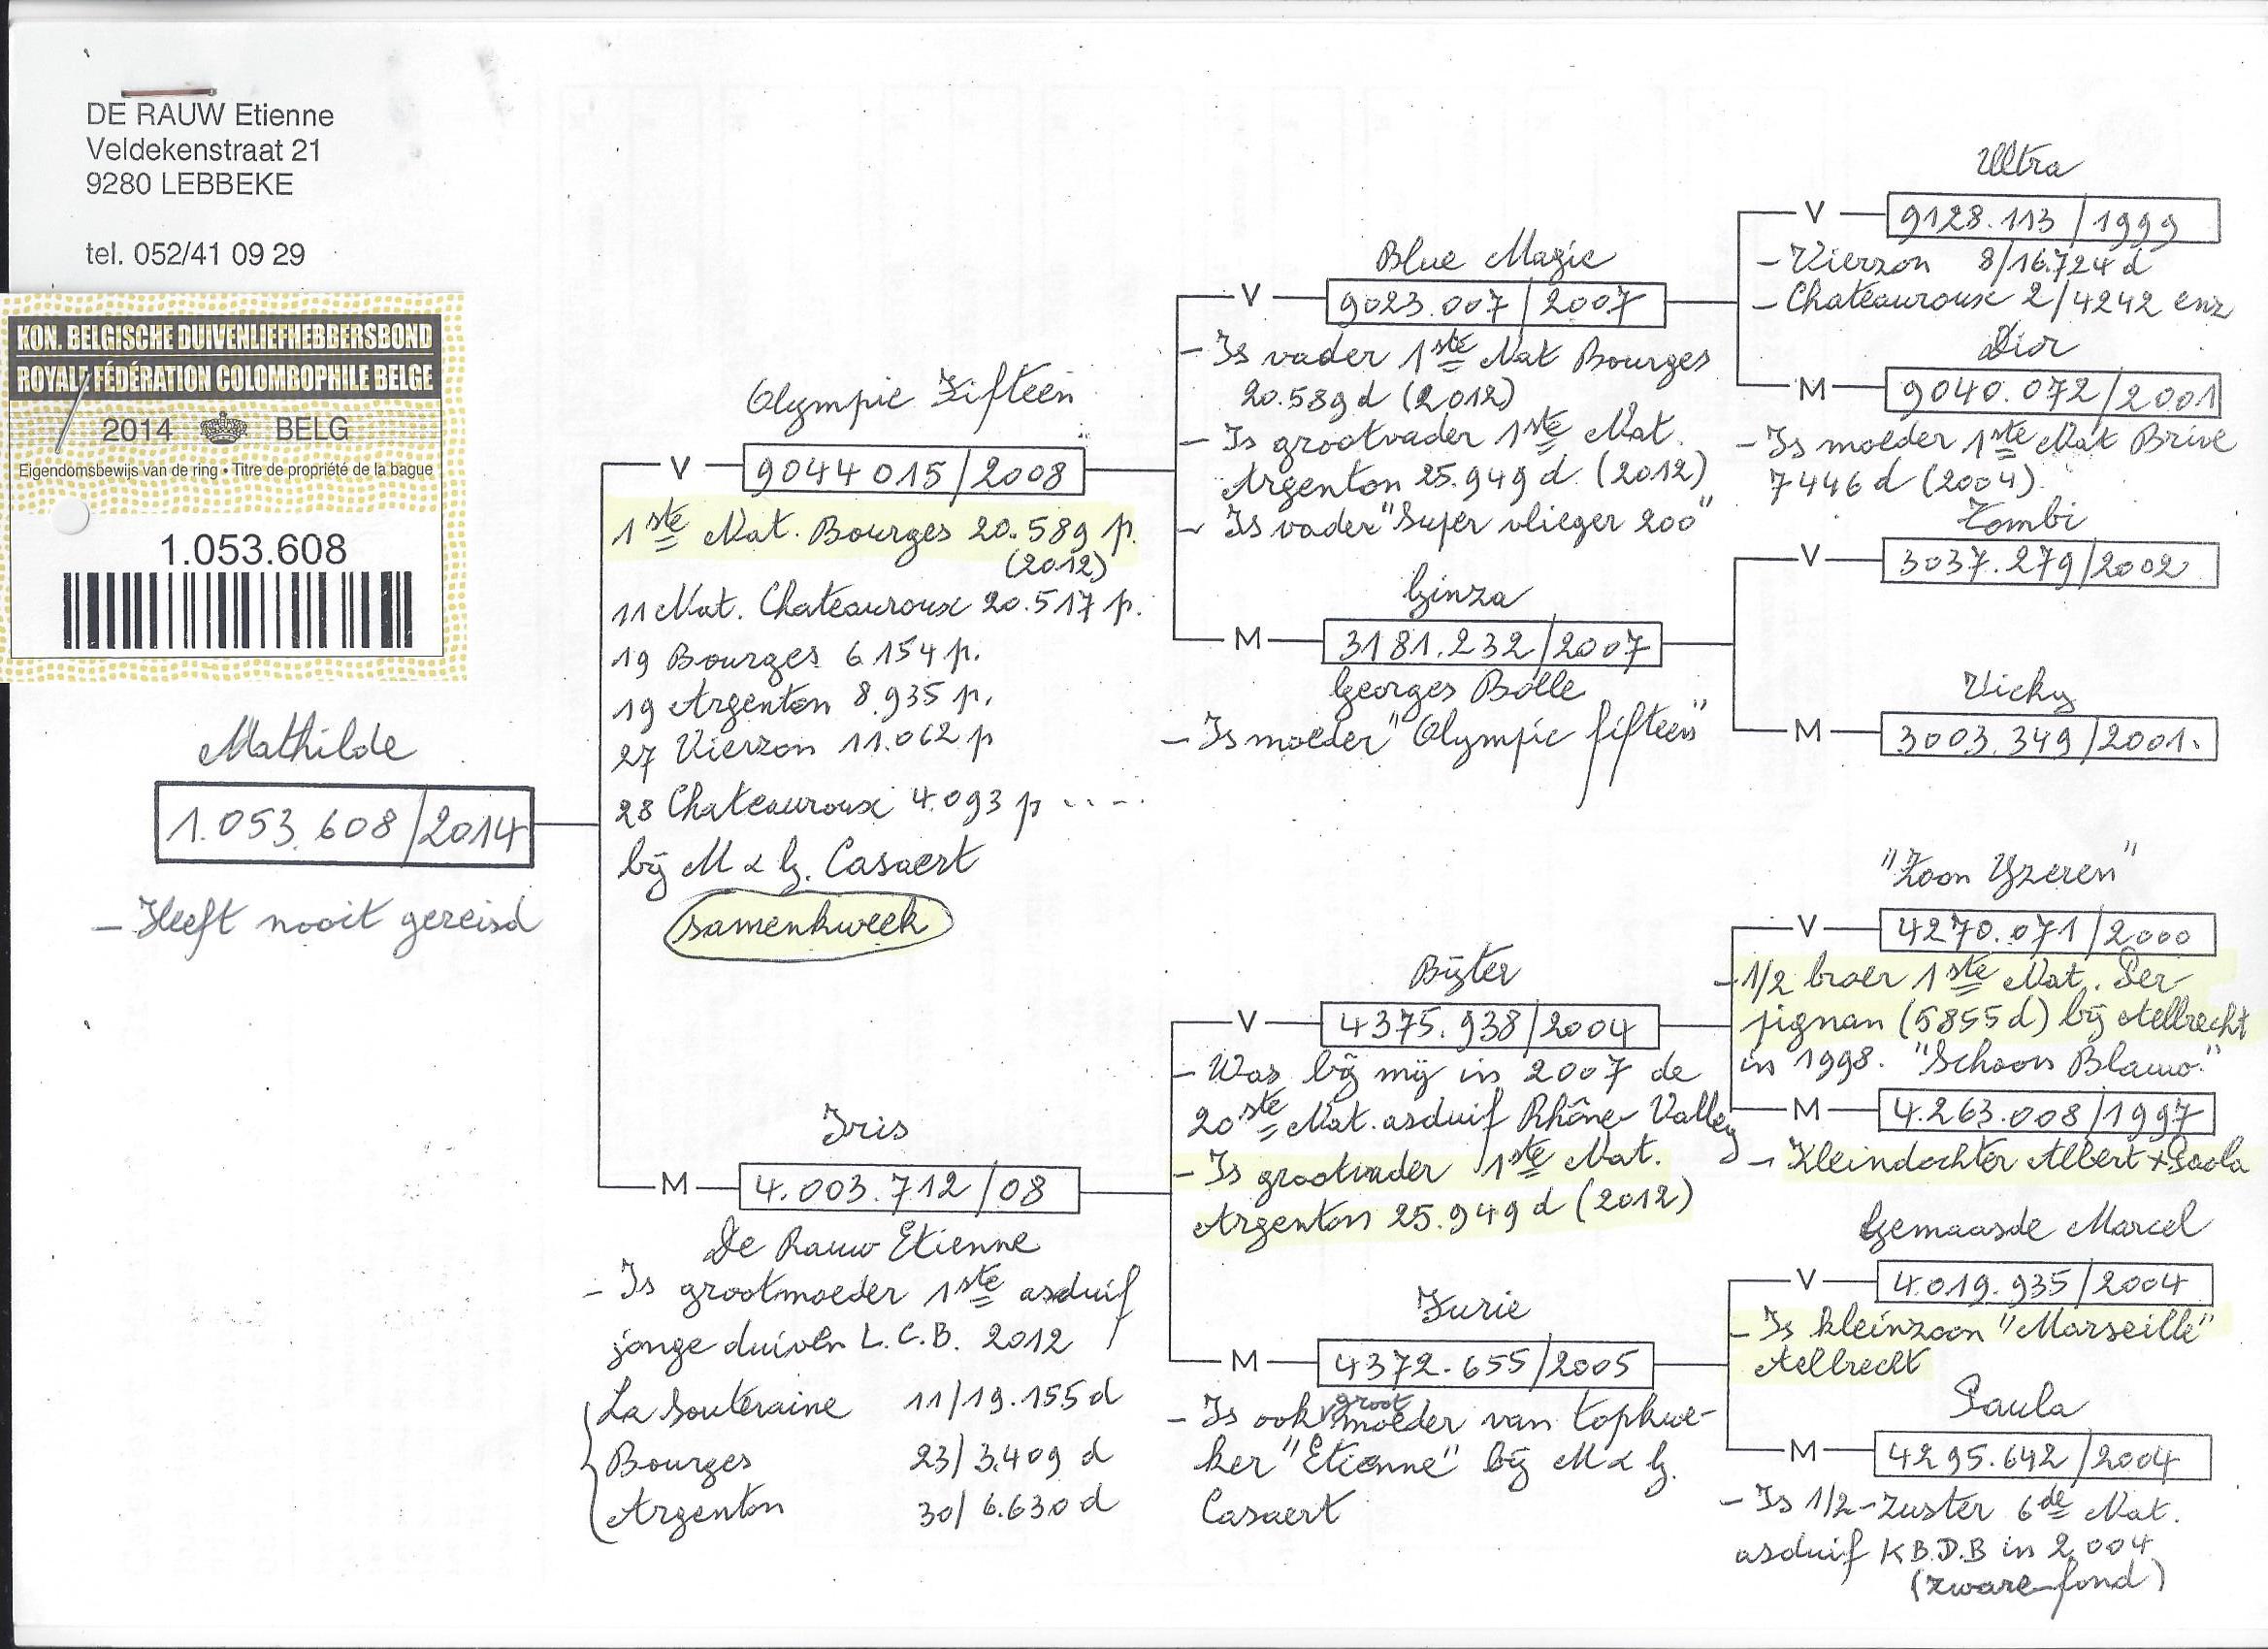 DE RAUW Etienne
Veldekenstraat 21
9280 LEBBEKE
tel. 052/41 09 29
KON. BELGISCHE DUIVENLIEFHEBBERSBOND
ROYALE FÉDÉRATION COLOMBOPHILE BELGE
2014 BELG
Eigendomsbewijs van de ring • Titre de propriété de la bague
1.053.608
Mathilde
1.053.608/2014
- Heeft nooit gereisd
Olympic Fifteen
V 9044 015/2008
1ste Nat. Bourges 20.589 p.
(2012)
11 Nat. Chateauroux 20.517 p.
19 Bourges 6.154 p.
19 Argenton 8.935 p.
27 Vierzon 11.062 p
28 Chateauroux 4.093 p ....
bij M & G. Casaert
samenkweek
Iris
M 4.003.712/08
De Rauw Etienne
- Is grootmoeder 1ste asduif
jonge duiven L.C.B. 2012
La Souteraine 11/19.155 d
Bourges 23/3.409 d
Argenton 30/6.630 d
Blue Magic
V 9023.007/2007
- Is vader 1ste Nat Bourges
20.589 d (2012)
- Is grootvader 1ste Nat.
Argenton 25.949 d. (2012)
- Is vader "Super vlieger 200"
Ginza
M 3181.232/2007
Georges Bolle
- Is moeder "Olympic fifteen"
Bijter
V 4375.938/2004
- Was bij mij in 2007 de
20ste Nat. asduif Rhône-Valley
- Is grootvader 1ste Nat.
Argenton 25.949 d (2012)
Furie
M 4372.655/2005
- Is ook groot moeder van topkwe-
ker "Etienne" bij M & G.
Casaert
Ultra
V 9128.113/1999
- Vierzon 8/16.724 d
- Chateauroux 2/4242 enz
Dior
M 9040.072/2001
- Is moeder 1ste Nat Brive
7446 d (2004)
Zombi
V 3037.279/2002
Vicky
M 3003.349/2001.
"Zoon Yzeren"
V 4270.071/2000
- 1/2 broer 1ste Nat. Per
pignan (5855 d) bij Aelbrecht
in 1998. "Schoon Blauw."
M 4.263.008/1997
- Kleindochter Albert + Paola
Gemaasde Marcel
V 4.019.935/2004
- Is kleinzoon "Marseille"
Aelbrecht
Paula
M 4295.642/2004
- Is 1/2-Zuster 6de Nat.
asduif K.B.D.B in 2004
(zware-fond)